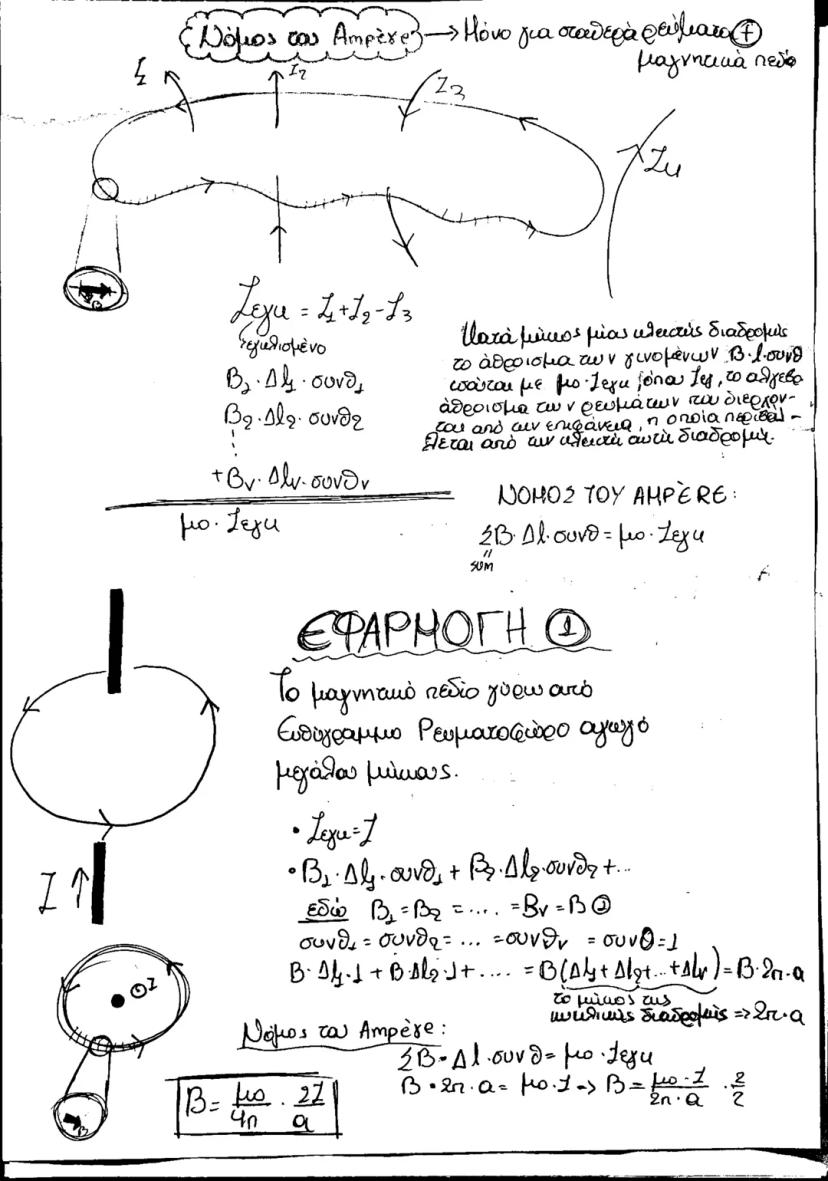 Νόμος του Ampère → Μόνο για σταθερά ρεύματα +
μαγνητικά πεδία
I I2 I3
I4
B
Iεγκ = I1 + I2 - I3
εγκλεισμένο
Κατά μήκος μίας κλειστής διαδρομής
το άθροισμα των γινομένων B·l·συνθ
ισούται με μο·Iεγκ, όπου Iεγ, το αλγεβρ
άθροισμα των ρευμάτων που διέρχον-
ται από την επιφάνεια, η οποία περιβάλ-
λεται από την κλειστή αυτή διαδρομή.
B1·Δl1·συνθ1
B2·Δl2·συνθ2
+Bν·Δlν·συνθν
μο·Iεγκ
ΝΟΜΟΣ ΤΟΥ AMPÈRE:
ΣB·Δl·συνθ = μο·Iεγκ
sum
ΕΦΑΡΜΟΓΗ ①
Το μαγνητικό πεδίο γύρω από
Ευθύγραμμο Ρευματοφόρο αγωγό
μεγάλου μήκους.
I
• Iεγκ = I
• B1·Δl1·συνθ1 + B2·Δl2·συνθ2 + ...
εδώ B1 = B2 = .... = Bν = B ①
συνθ1 = συνθ2 = ... = συνθν = συν0 = 1
B·Δl1·1 + B·Δl2·1 + .... = B(Δl1 + Δl2 + ... + Δlν) = B·2π·a
το μήκος της
κυκλικής διαδρομής => 2π·a
I
Νόμος του Ampère:
ΣB·Δl·συνθ = μο·Iεγκ
B·2π·a = μο·I → B = μο·I / 2π·a · 2/2
B = μο/4π · 2I/a
B